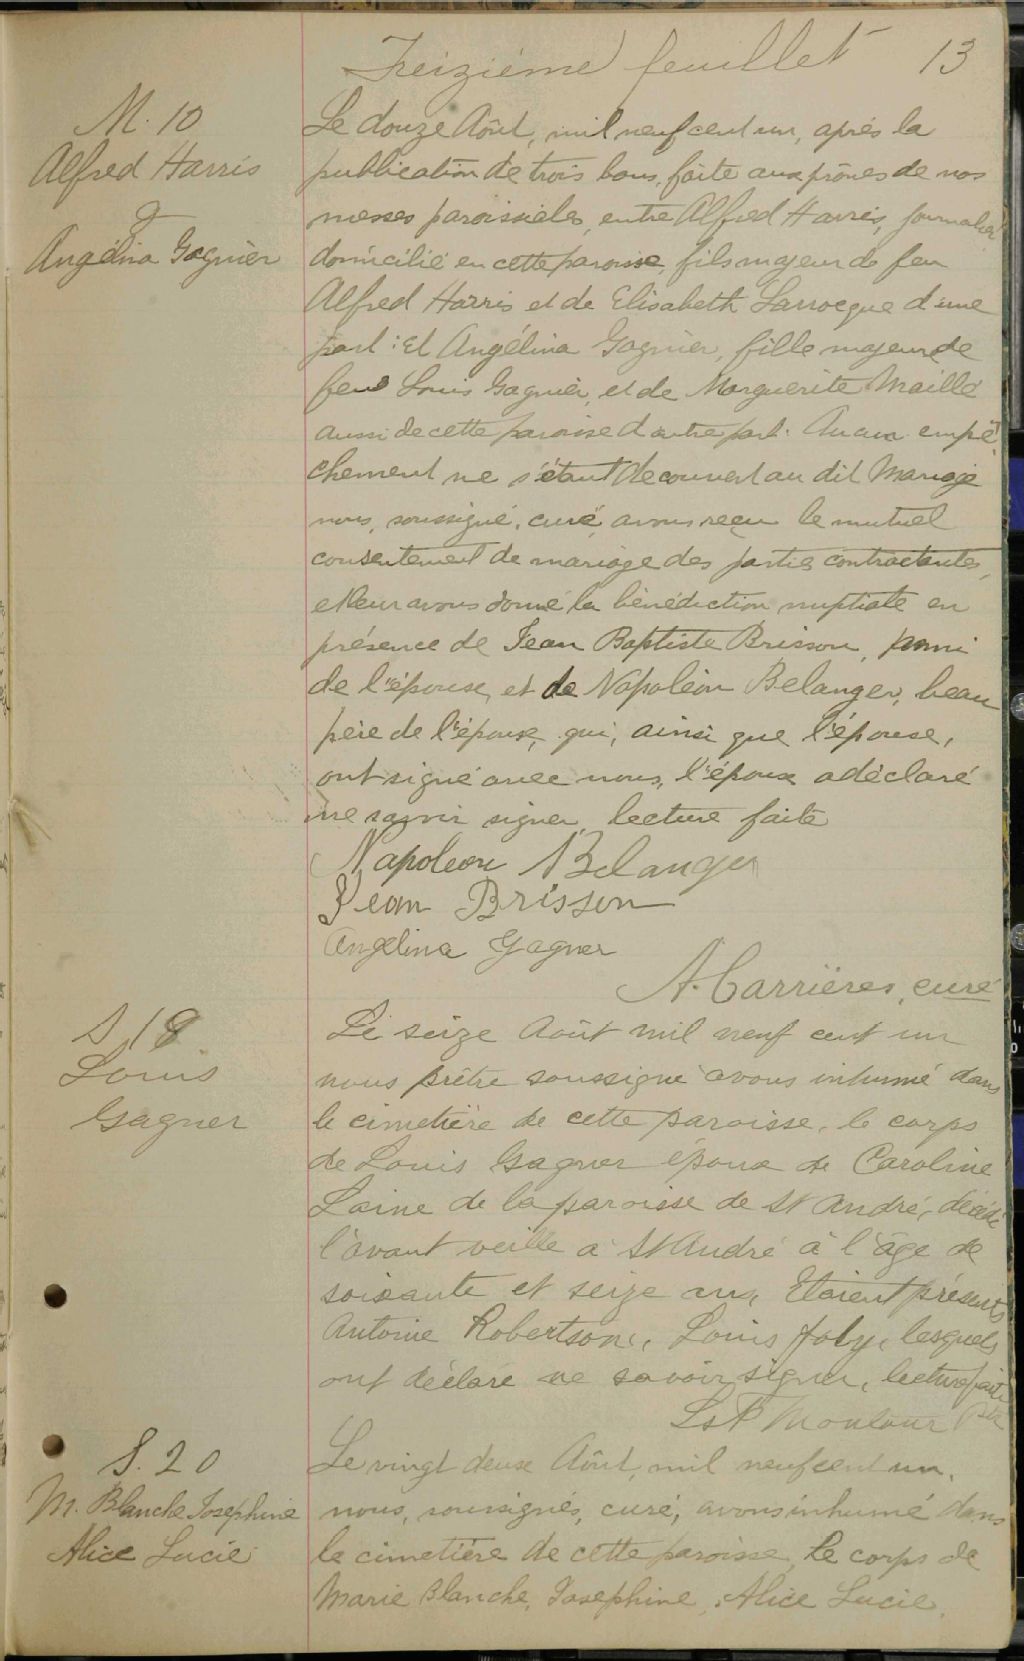 Treizième feuillet 13
M. 10
Alfred Harris
&
Angélina Gagnier
Le douze Août, mil neuf cent un, après la
publication de trois bans, faite aux prônes de nos
messes paroissiales, entre Alfred Harris, journalier
domicilié en cette paroisse, fils majeur de feu
Alfred Harris et de Elisabeth Larrocque d'une
part: Et Angélina Gagnier, fille majeure de
feu Louis Gagnier, et de Marguerite Maillé
aussi de cette paroisse d'autre part. Aucun empê
chement ne s'étant découvert au dit Mariage
nous, soussigné, curé, avons reçu le mutuel
consentement de mariage des parties contractantes,
et leur avons donné la bénédiction nuptiale en
présence de Jean Baptiste Brisson, ami
de l'épouse, et de Napoléon Belanger, beau
père de l'époux, qui, ainsi que l'épouse,
ont signé avec nous, l'époux a déclaré
ne savoir signer, lecture faite
Napoleon Belanger
Jean Brisson
Angelina Gagner
A. Carrières, curé
S 18
Louis
Gagner
Le seize Août mil neuf cent un
nous prêtre soussigné avons inhumé dans
le cimetière de cette paroisse, le corps
de Louis Gagner époux de Caroline
Laine de la paroisse de St André, décédé
l'avant veille à St André à l'âge de
soixante et seize ans, Etaient présents
Antoine Robertson, Louis Joly, lesquels
ont déclaré ne savoir signer, lecture faite
Ls P Montour Ptr
S. 20
M. Blanche Josephine
Alice Lucie
Le vingt deux Août, mil neuf cent un,
nous, soussignés, curé, avons inhumé dans
le cimetière de cette paroisse, le corps de
Marie Blanche, Josephine, Alice Lucie,